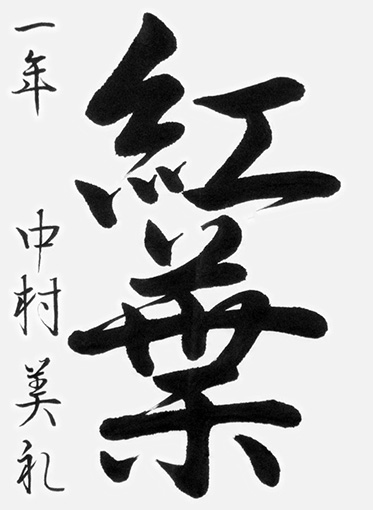 紅葉
一年 中村美礼